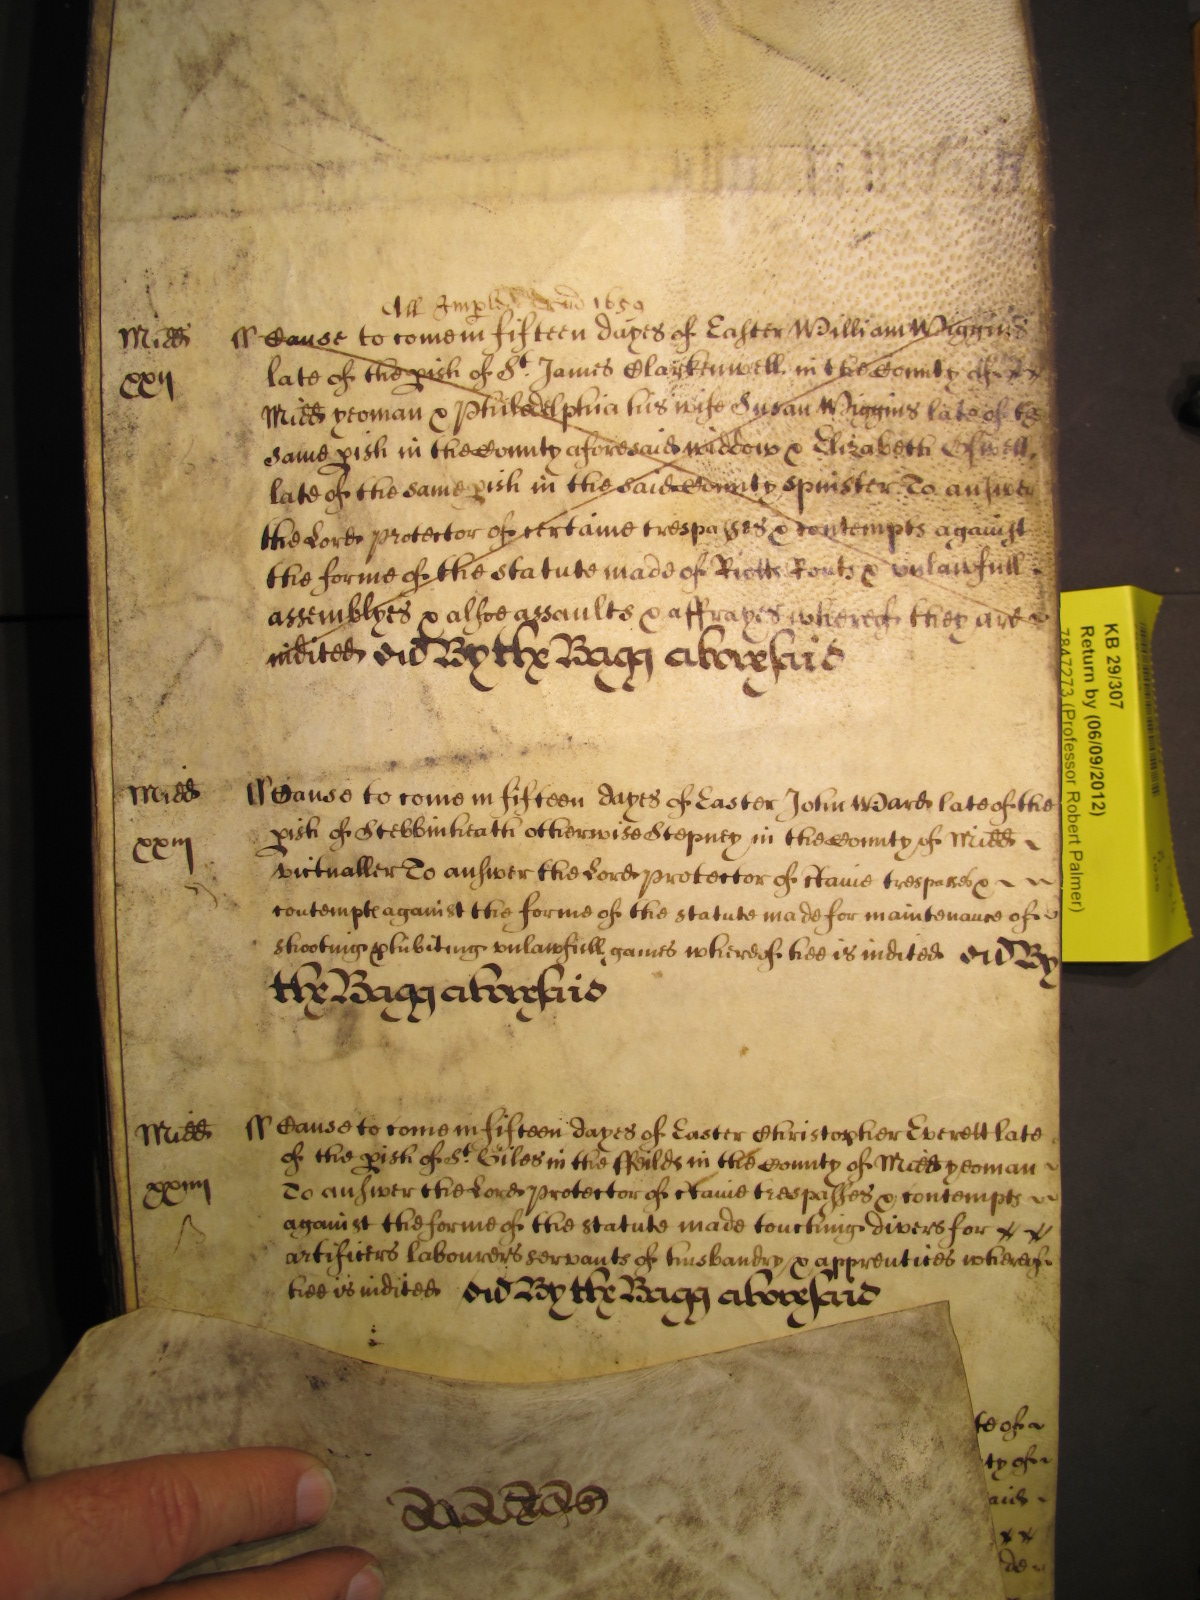 All Impl 1659
Midd ss Cause to come in fifteen dayes of Easter William Wiggins
xxij late of the pish of St. James Clarkenwell in the County of
Midd yeoman & Philadelphia his wife Susan Wiggins late of the
same pish in the County aforesaid widdow & Elizabeth
late of the same pish in the said County spinster To answer
the Lord Protector of certaine trespasses & contempts against
the forme of the statute made of Riotts Routs & unlawfull
assemblyes & alsoe assaults & affrayes whereof they are
indited By the Bagg abovesaid
Midd ss Cause to come in fifteen dayes of Easter John Ward late of the
xxiij pish of Stebbinheath otherwise Stepney in the County of Midd
victualler To answer the Lord Protector of ctaine trespasses &
contempts against the forme of the statute made for maintenance of
shooting & unlawfull games whereof hee is indited By
the Bagg abovesaid
Midd ss Cause to come in fifteen dayes of Easter Christopher Everett late
of the pish of St. Giles in the ffeilds in the County of Midd yeoman
xxiiij To answer the Lord Protector of ctaine trespasses & contempts
against the forme of the statute made touching divers for
artificers labourers servants of husbandry & apprentices whereof
hee is indited By the Bagg abovesaid
te of
ty of
aid
KB 29/307
Return by (06/09/2012)
7847273 (Professor Robert Palmer)